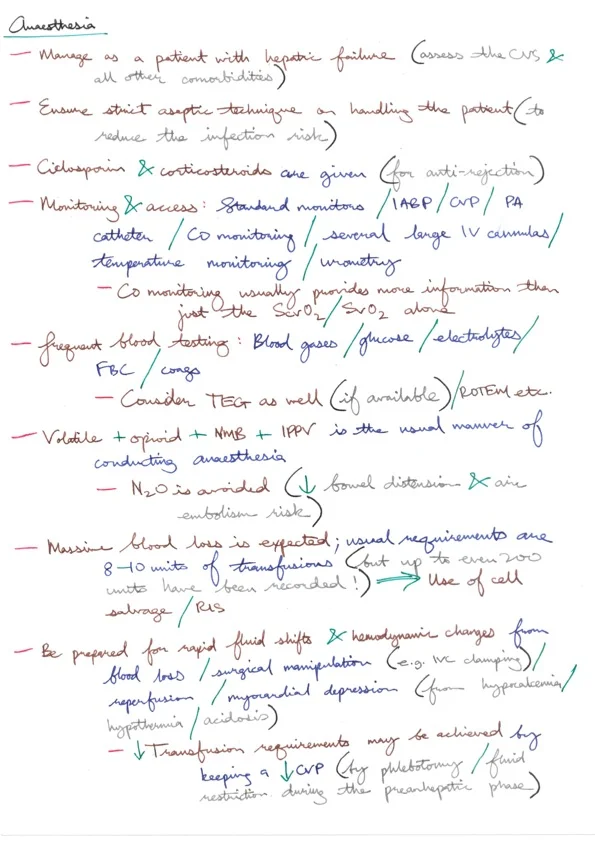 Anaesthesia
— Manage as a patient with hepatic failure (assess the CVS &
all other comorbidities)
— Ensure strict aseptic technique on handling the patient (to
reduce the infection risk)
— Ciclosporin & corticosteroids are given (for anti-rejection)
— Monitoring & access: Standard monitors / IABP / CVP / PA
catheter / CO monitoring / several large IV cannulas /
temperature monitoring / urometry
— CO monitoring usually provides more information than
just the ScvO2 / SvO2 alone
— Frequent blood testing: Blood gases / glucose / electrolytes /
FBC / coags
— Consider TEG as well (if available) / ROTEM etc.
— Volatile + opioid + NMB + IPPV is the usual manner of
conducting anaesthesia
— N2O is avoided (↓ bowel distension & air
embolism risk)
— Massive blood loss is expected; usual requirements are
8-10 units of transfusions (but up to even 200
units have been recorded!) ⇒ Use of cell
salvage / RIS
— Be prepared for rapid fluid shifts & hemodynamic changes from
blood loss / surgical manipulation (e.g. IVC clamping) /
reperfusion / myocardial depression (from hypocalcemia /
hypothermia / acidosis)
— ↓ Transfusion requirements may be achieved by
keeping a ↓ CVP (by phlebotomy / fluid
restriction during the preanhepatic phase)